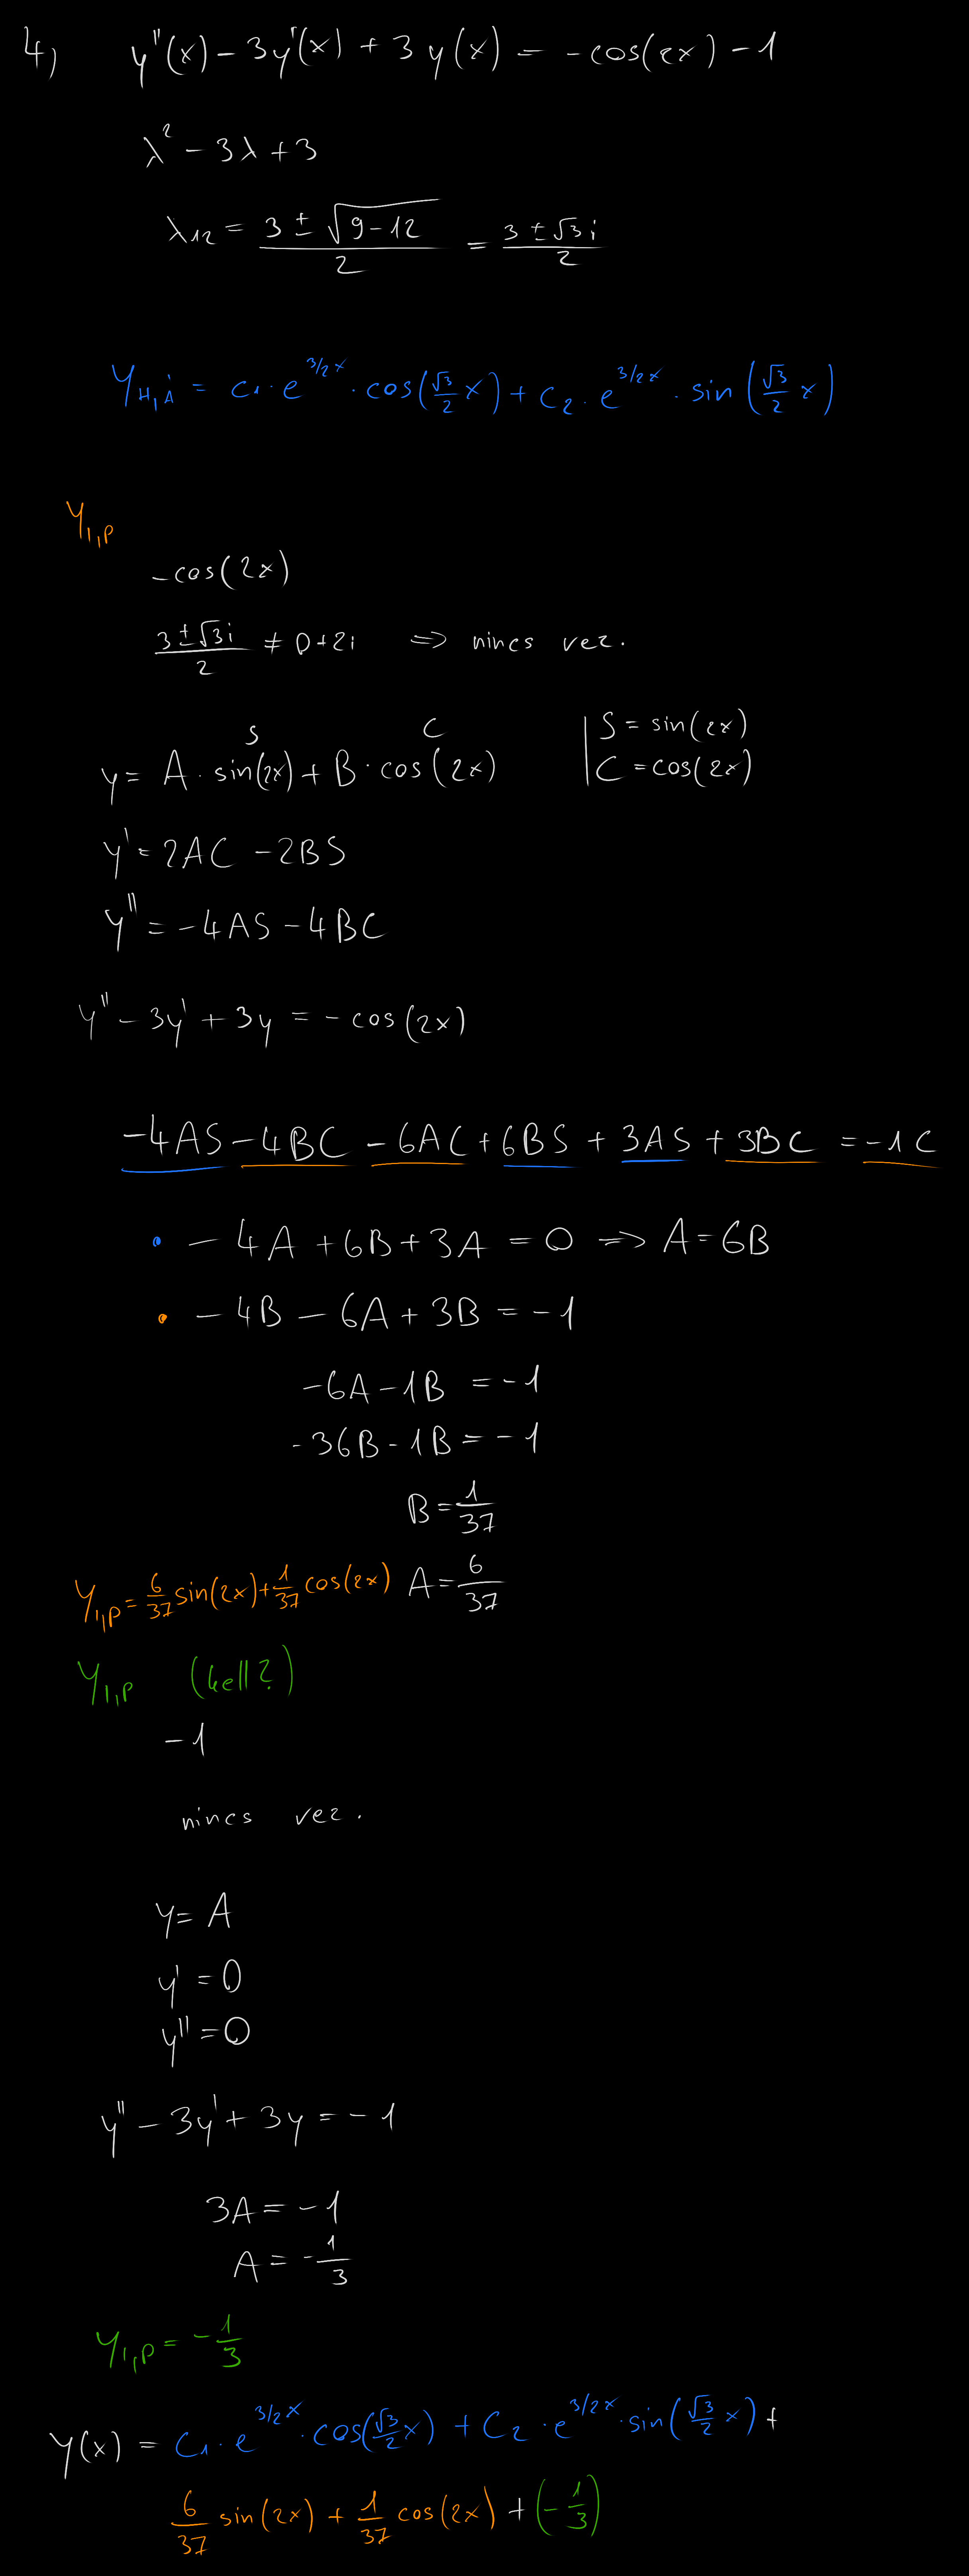 4, y''(x) - 3y'(x) + 3y(x) = -cos(2x) - 1
λ² - 3λ + 3
λ₁₂ = (3 ± √(9-12))/2 = (3 ± √3 i)/2
Y_H,Á = C₁ · e^(3/2 x) · cos(√3/2 x) + C₂ · e^(3/2 x) · sin(√3/2 x)
Y_I,P
-cos(2x)
(3 ± √3 i)/2 ≠ 0+2i => nincs rez.
S C | S = sin(2x)
y = A · sin(2x) + B · cos(2x) | C = cos(2x)
y' = 2AC - 2BS
y'' = -4AS - 4BC
y'' - 3y' + 3y = -cos(2x)
-4AS - 4BC - 6AC + 6BS + 3AS + 3BC = -1C
• -4A + 6B + 3A = 0 => A = 6B
• -4B - 6A + 3B = -1
-6A - 1B = -1
-36B - 1B = -1
B = 1/37
Y_I,P = 6/37 sin(2x) + 1/37 cos(2x) A = 6/37
Y_I,P (kell?)
-1
nincs rez.
y = A
y' = 0
y'' = 0
y'' - 3y' + 3y = -1
3A = -1
A = -1/3
Y_I,P = -1/3
Y(x) = C₁ · e^(3/2 x) · cos(√3/2 x) + C₂ · e^(3/2 x) · sin(√3/2 x) +
6/37 sin(2x) + 1/37 cos(2x) + (-1/3)